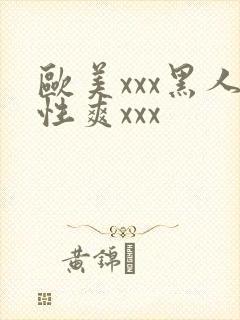 歐美xxx黑人
性爽xxx
黃錦